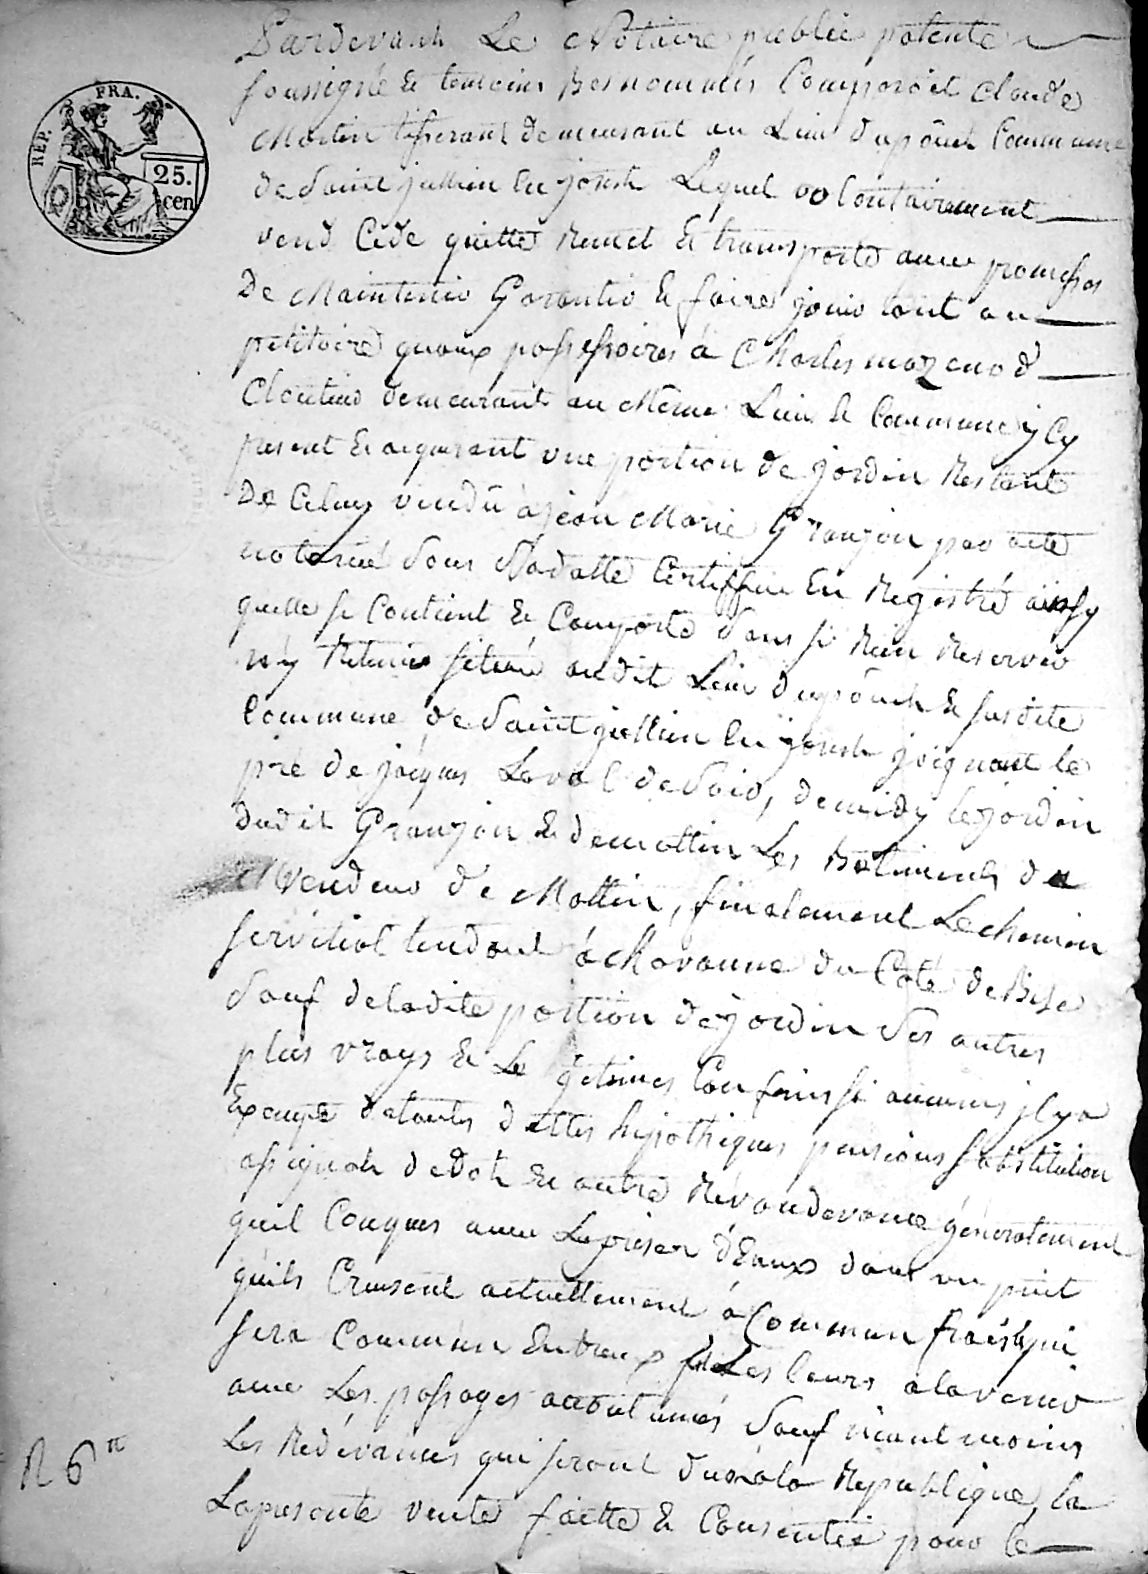 REP. FRA.
25.
cen
Pardevant Le Notaire publicq patenté
soussigné & temoins bas nommés Comparoit Claude
Martin tisserant demeurant au Lieu dupôuch Commune
de Saint jullien en jonsk Lequel volontairement
vend Cède quitte Remet & transporte avec promesses
De Maintenir Garantir & faire jouir tant au
petitoire quaux possessoires à Charles mazenod
Cloutier demeurant au Même Lieu & Commune jcy
present & aquerant une portion de jardin Restant
De Celuy vendu à jean Marie Granjon par acte
notarié Sous Sadatte Certiffié En Registré ainsy
quelle se Contient & Comporte Sans si Rien Reserver
n'y Retenir située audit Lieu dupôuch & susdite
Commune de Saint jullien en jonsk joignant le
pré de jacques Laval de Soir, demidy le jardin
dudit Granjon & dematin Les Batiments du
Vendeur de Mattin, finalement Le chemin
servitial tendant à Maranne du Coté de Bise
Sauf deladite portion de jardin Ses autres
plus vrays & Le gitimes Confins si aucuns jlya
Exempte detoutes dettes hipothèques pensions substitution
assignat dedot & autre Revandevance généralement
quel Conques avec Laprise d'Eaux dans un puit
quils Creusent actuellement à Commun frais & qui
sera Commun Entreux & Les leurs alavenir
avec Les passages accoutumés Sauf néantmoins
Les Redevances qui seront dues à la Republique, la
R 6
Lapresente vente faitte & Consentie pour le